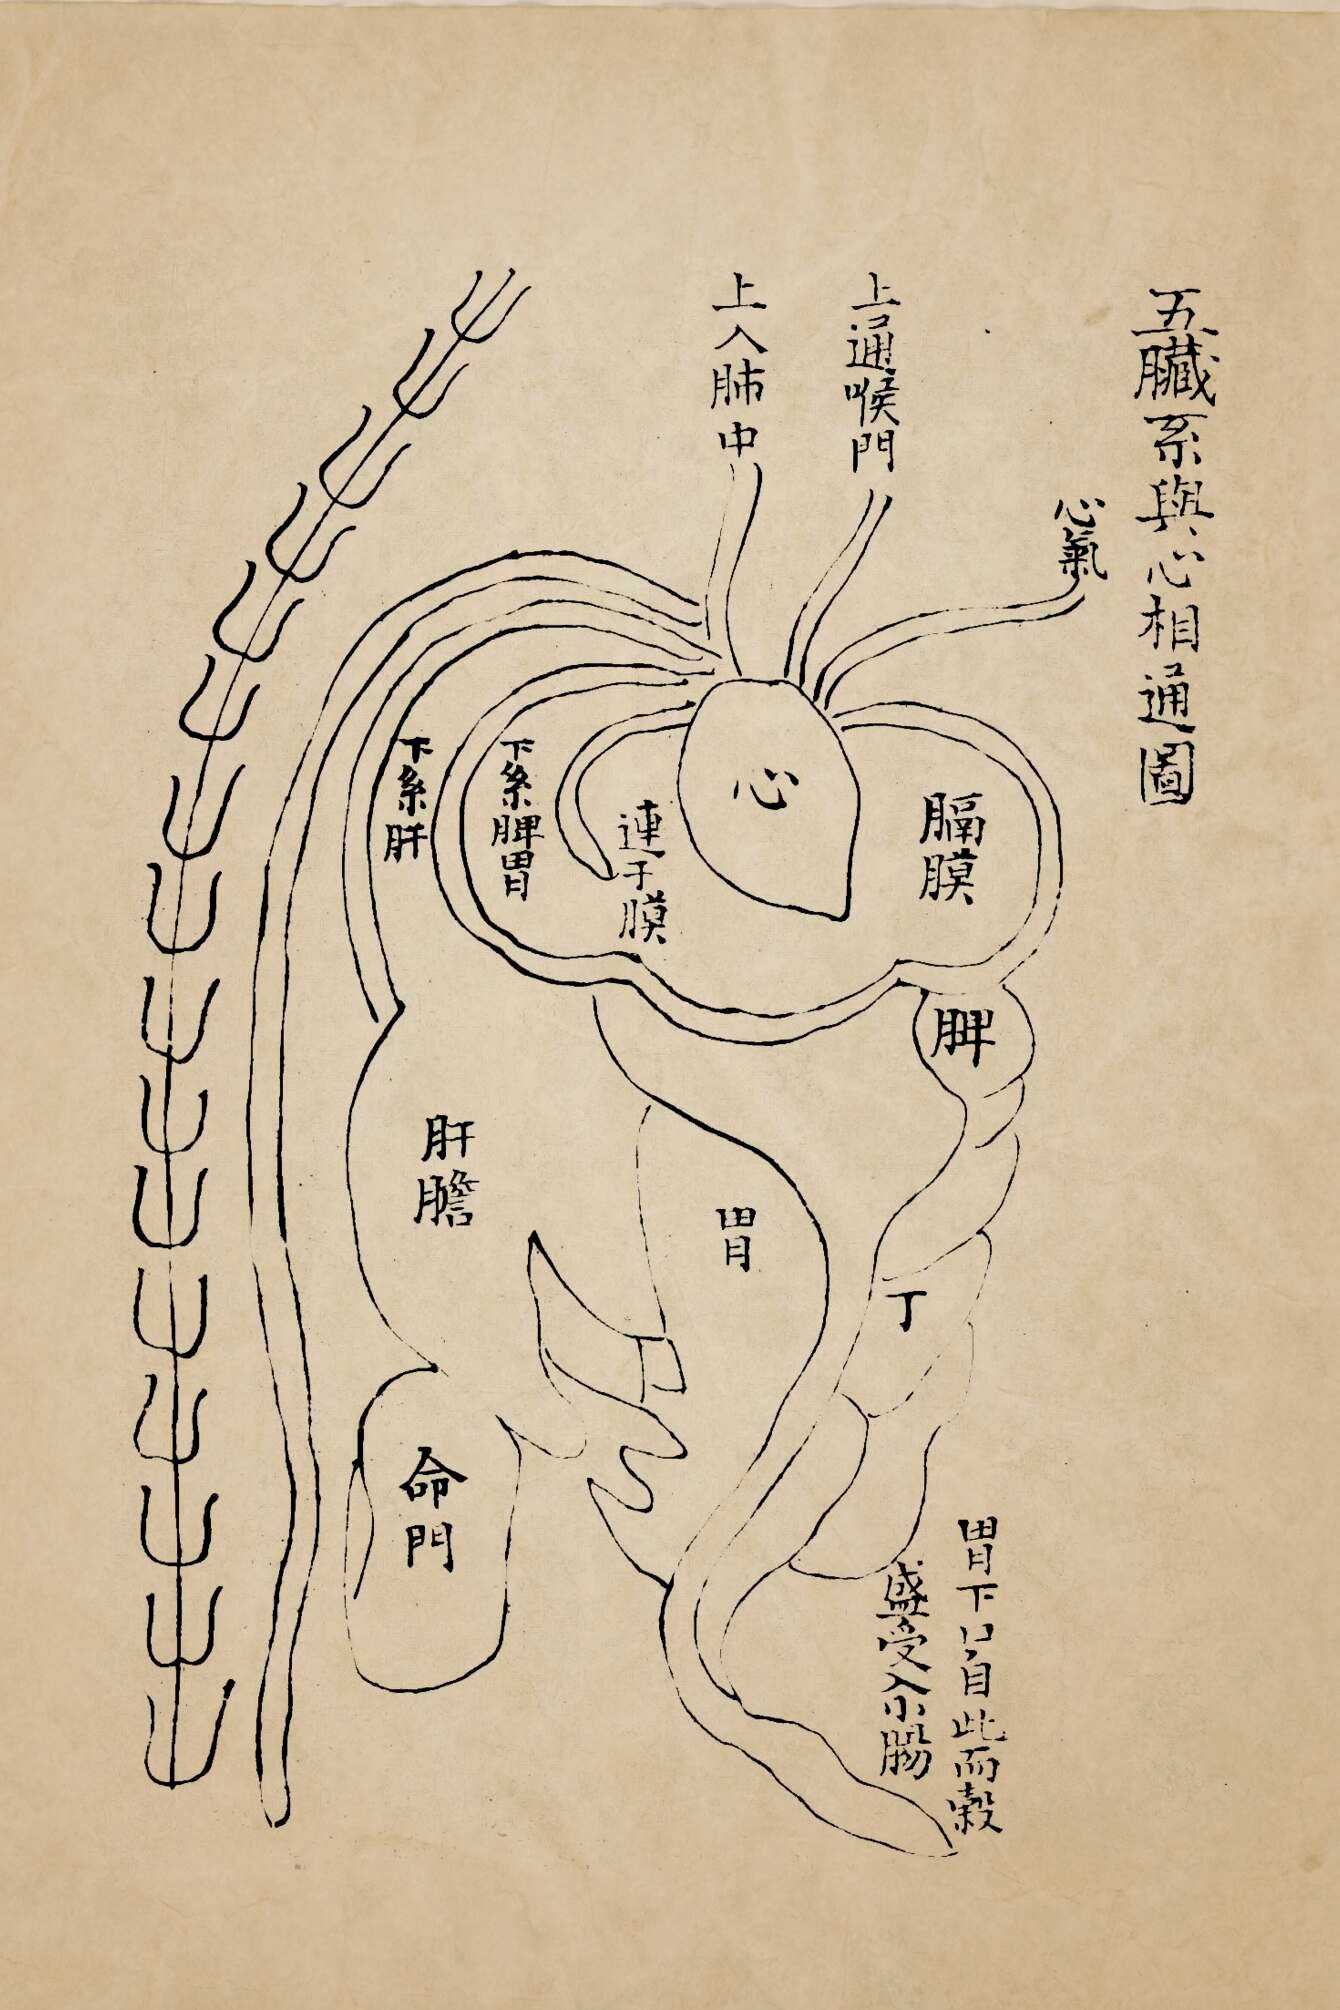 五臟系與心相通圖
心氣
上通喉門
上入肺中
膈膜
心
連于膜
下系脾胃
下系肝
脾
肝膽
胃
丁
命門
胃下口自此而穀
盛受入小腸